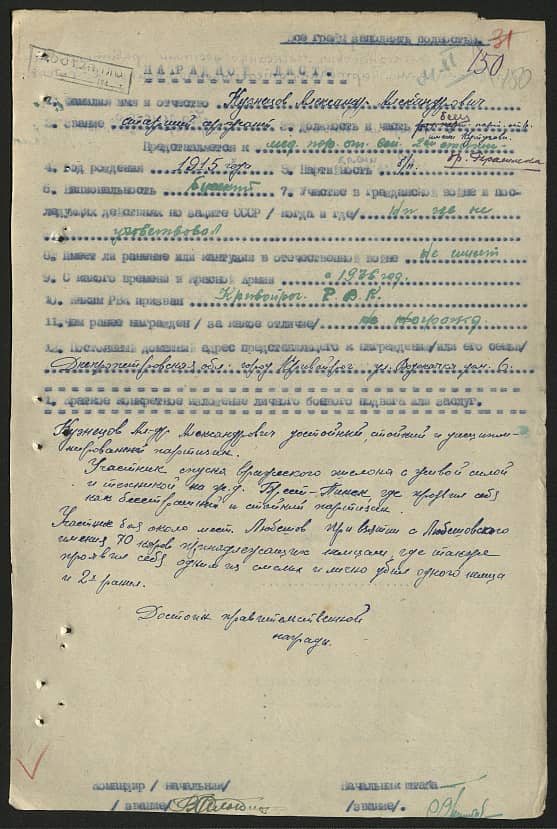 Все графы заполнять полностью.
31
150
150
НАГРАДНОЙ ЛИСТ.
1. Фамилия имя и отчество Кузнецов Александр Александрович
2. Звание старший сержант 3. Должность и часть боец парт. отр.
имени Кутузова
Представляется к мед. пар. от. вой. 2ой степени
бр.
4. Год рождения 1915 года 5. Партийность б/п.
6. Национальность 7. Участие в гражданской войне и пос-
ледующих действиях по защите СССР / когда и где/ не
участвовал
8. Имеет ли ранение или контузии в отечественной войне не имеет
9. С какого времени в Красной Армии с 1936 год.
10. Каким РВК призван Криворог. Р.В.К.
11. Чем ранее награжден / за какое отличие/ не награжд.
12. Постоянный домашний адрес представляемого к награждению/или его семьи/
Днепропетровская обл. город Кривойрог ул. дом. 6.
1. Краткое конкретное изложение личного боевого подвига или заслуг.
Кузнецов Ал-др Александрович достойный, стойкий и дисципли-
нированный партизан.
Участник спуска вражеского эшелона с живой силой
и техникой на ж.д. Брест-Пинск, где проявил себя
как бесстрашный и стойкий партизан.
Участник боя около мест. Любешов при взятии с Любешовского
имения 70 коров принадлежащих немцам, где также
проявил себя одним из смелых и лично убил одного немца
и 2х ранил.
Достоин правительственной
награды.
Командир / начальник/
/ звание/
Начальник штаба
/звание/.